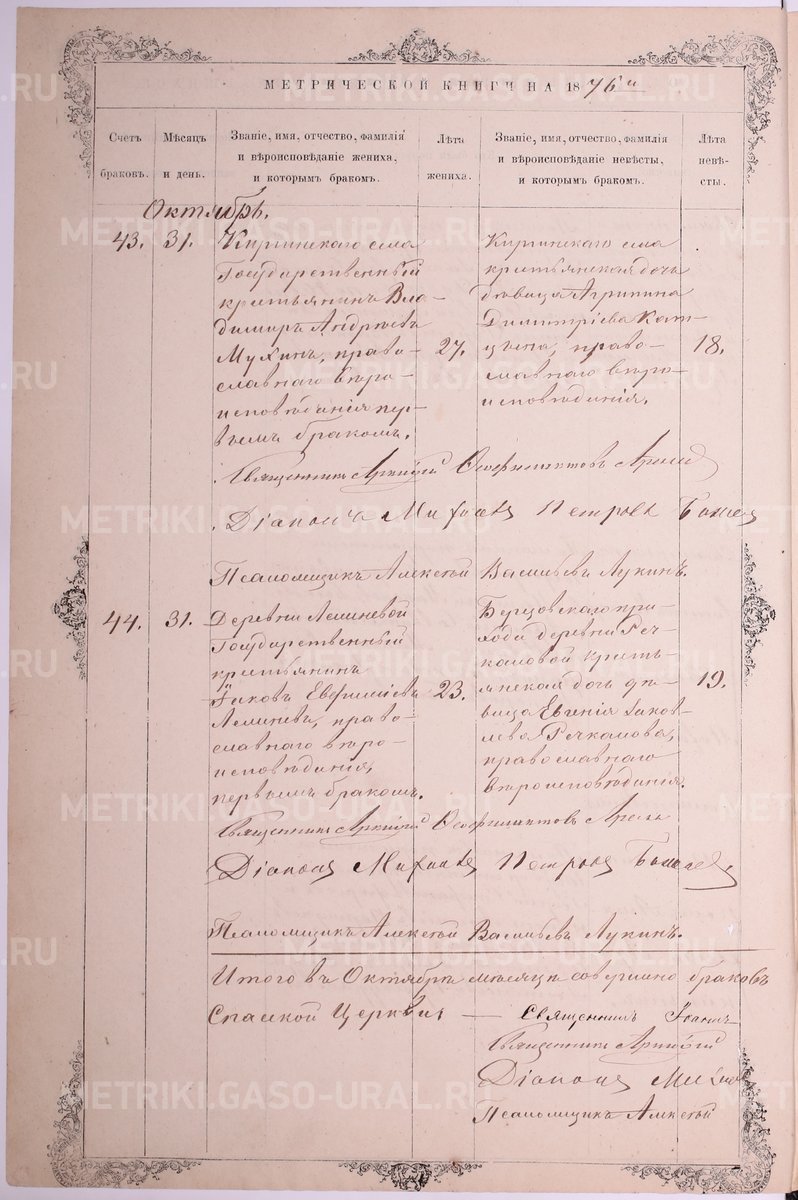 МЕТРИЧЕСКОЙ КНИГИ НА 1876й
Счетъ браковъ.
Мѣсяцъ и день.
Званіе, имя, отчество, фамилія и вѣроисповѣданіе жениха, и которымъ бракомъ.
Лѣта жениха.
Званіе, имя, отчество, фамилія и вѣроисповѣданіе невѣсты, и которымъ бракомъ.
Лѣта невѣсты.
Октябрь.
43.
31.
Киргинскаго села
Государственный
крестьянинъ Вла-
димиръ Андреевъ
Мухинъ, право-
славнаго вѣро-
исповѣданія пер-
вымъ бракомъ.
27.
Киргинскаго села
крестьянская дочь
дѣвица Агрипина
Димитріева Кат-
цына, право-
славнаго вѣро-
исповѣданія.
18.
Священникъ Аркадій Ѳеофилактовъ
Діаконъ Михаилъ Петровъ
Псаломщикъ Алексѣй Васильевъ Лукинъ.
44.
31.
Деревни
Государственный
крестьянинъ
Іаковъ Евфиміевъ
право-
славнаго вѣро-
исповѣданія,
первымъ бракомъ.
23.
при-
хода деревни Реч-
каловой кресть-
янская дочь дѣ-
вица Евгенія Іаков-
лева Речкалова,
православнаго
вѣроисповѣданія.
19.
Священникъ Аркадій Ѳеофилактовъ
Діаконъ Михаилъ Петровъ
Псаломщикъ Алексѣй Васильевъ Лукинъ.
Итого въ Октябрѣ мѣсяцѣ совершено браковъ
Спасской Церкви — Священникъ Іоаннъ
Священникъ Аркадій
Діаконъ
Псаломщикъ Алексѣй
METRIKI.GASO-URAL.RU